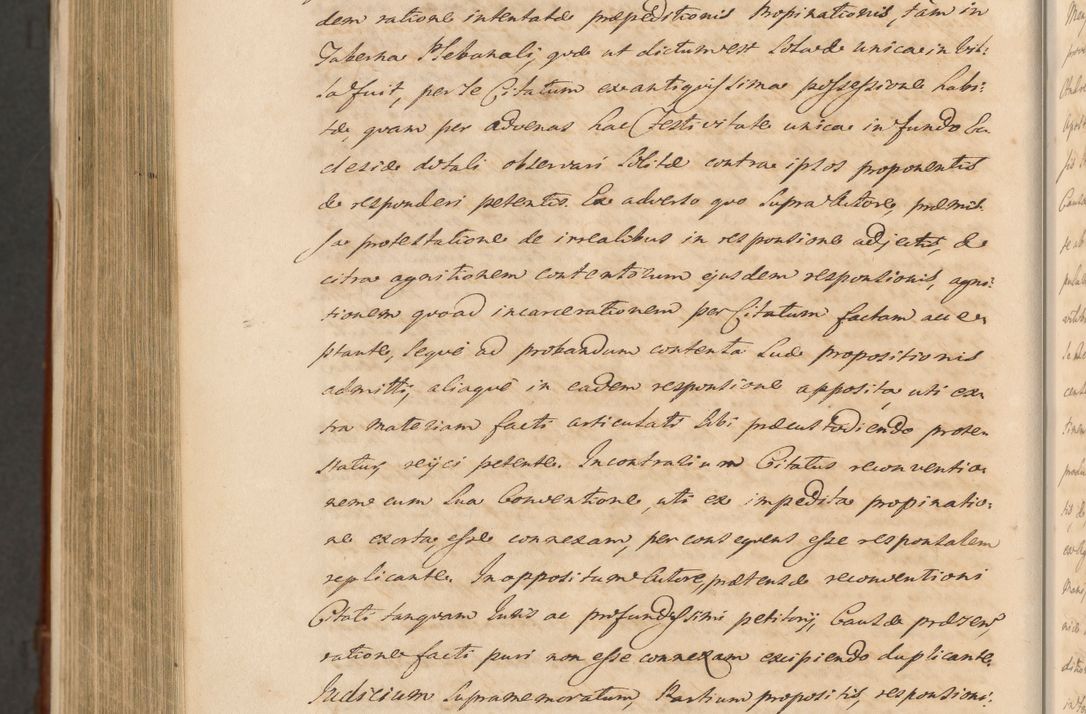 dem ratione intentatæ præpeditionis Propinationis, tam in
Taberna Plebanali, quæ ut dictum est Solade unica in Vil:
la fuit, per se Citatum ex antiquissima possessione habi:
tæ, quam per advenas hac Festivitate unica in fundo Ec
clesiæ dotali observari solitæ contra ipsos proponentis
de responderi petentis. Ex adverso quo supra Actore, præmis
sa protestatione de irrealibus in responsione adjectis, &
citra agnitionem contentorum ejusdem responsionis, agni:
tionem quoad incarcerationem per Citatum factam acce
ptante, seque ad probandum contenta suæ propositionis
admitti, aliaque in eadem responsione apposita uti ex
tra materiam facti articulati sibi præcustodiendo proten
statur, rejici petente. In contrarium Citatus reconventio
nem cum sua Conventione, uti ex impedita propinatio:
ne exorta, esse connexam, per consequens esse responsalem
replicante. In oppositum Actore, prætensæ reconventioni
Citati tanquam Juris ac profundissimi petitorij, Causæ præsens,
ratione facti puri non esse connexam excipiendo duplicante,
Judicium supramemoratum, Partium propositis, responsioni: